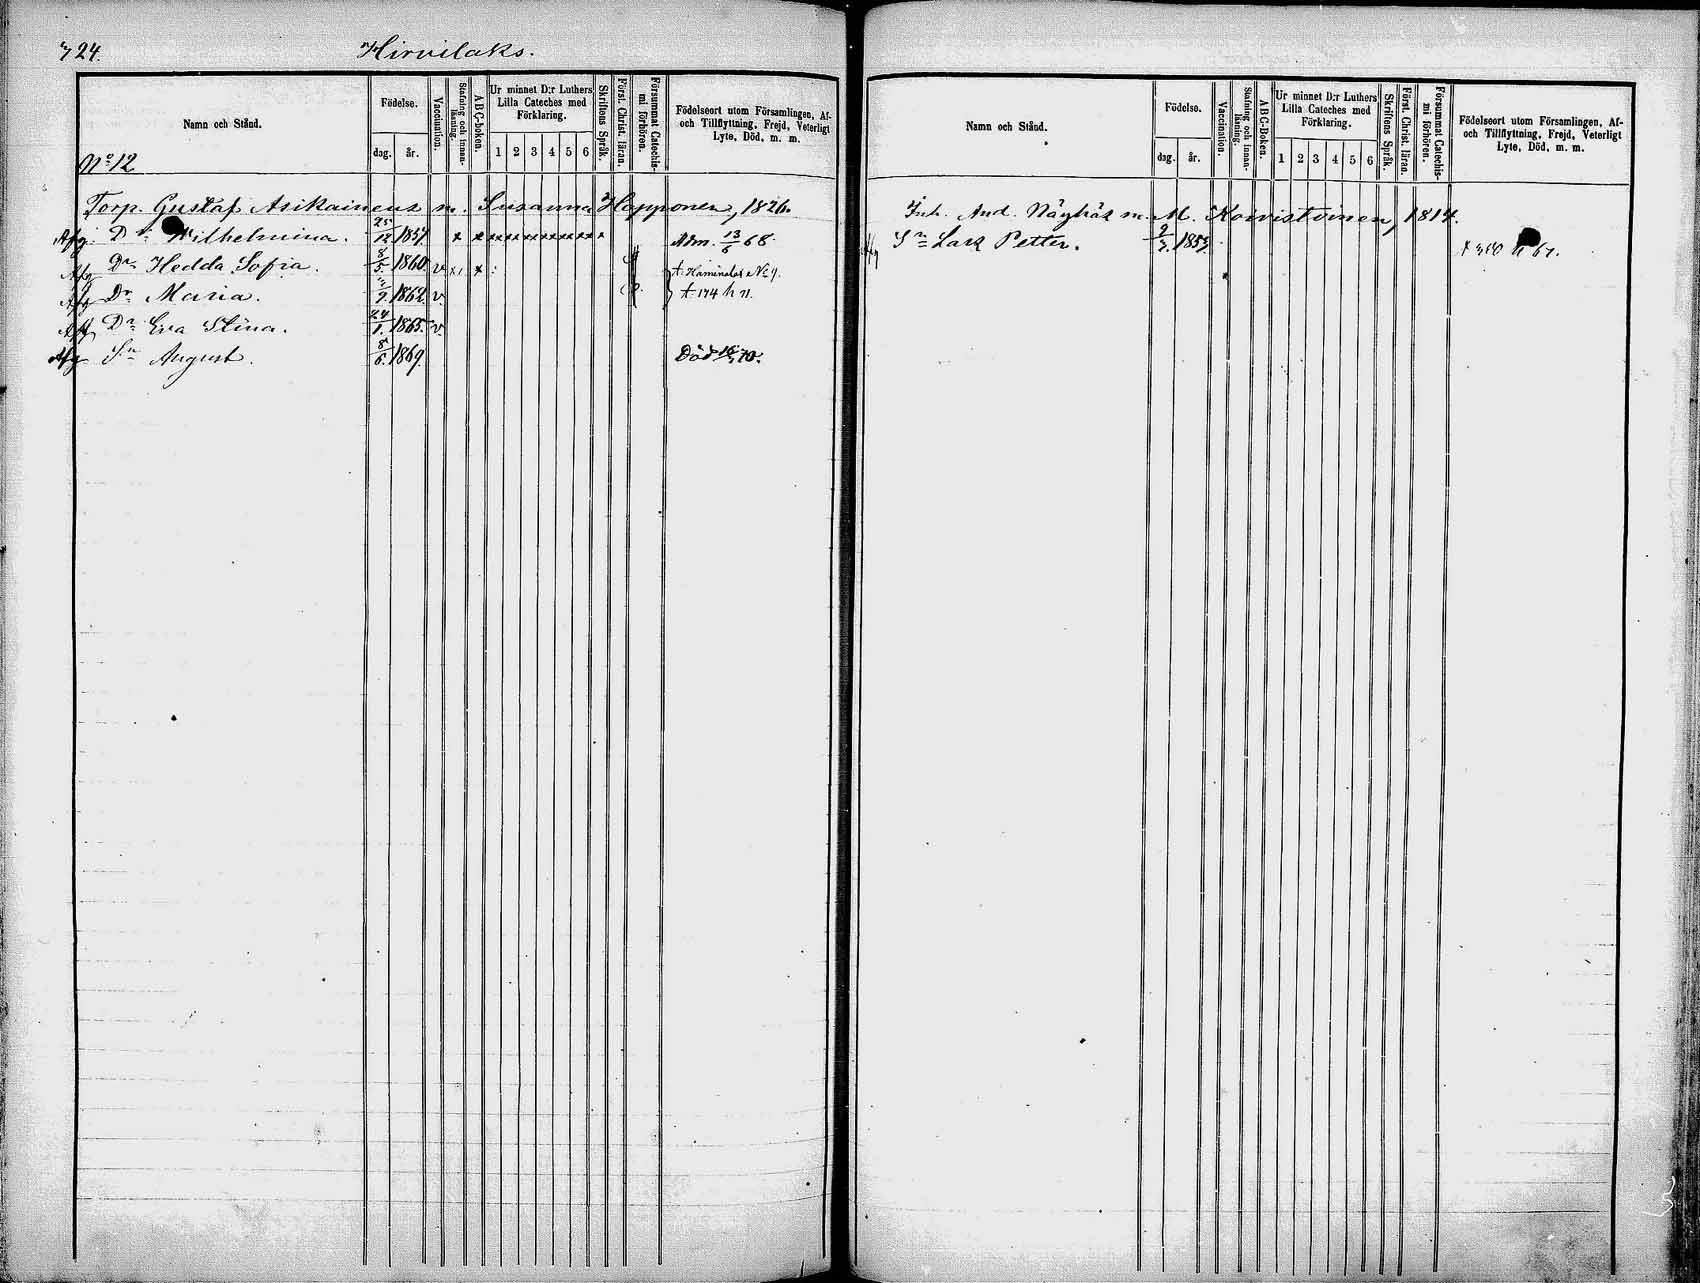 724. Hirvilaks.
Namn och Stånd.
Födelse.
dag. år.
Vaccination.
Stafning och innan-
läsning.
ABC-boken.
Ur minnet D:r Luthers
Lilla Cateches med
Förklaring.
1 2 3 4 5 6
Skriftens Språk.
Först. Christ. läran.
Försummat Catechis-
mi förhören.
Födelseort utom Församlingen, Af-
och Tillflyttning, Frejd, Veterligt
Lyte, Död, m. m.
No 12
Torp. Gustaf Asikainens m. Susanna Happonen, 1826.
Afg. Dr Wilhelmina. 25/12 1857. x x x x x x x x x x x Adm. 13/6 68.
Afg Dr Hedda Sofia. 8/5. 1860. v x x Kaminalax No 9.
Afg Dr Maria. 9. 1862. v. 174 h 71.
Afg Dr Eva Stina. 24/1. 1865. v.
Afg Sn August. 8/6. 1869. Död 70.
Namn och Stånd.
Födelse.
dag. år.
Vaccination.
Stafning och innan-
läsning.
ABC-Boken.
Ur minnet D:r Luthers
Lilla Cateches med
Förklaring.
1 2 3 4 5 6
Skriftens Språk.
Först. Christ. läran.
Försummat Catechis-
mi förhören.
Födelseort utom Församlingen, Af-
och Tillflyttning, Frejd, Veterligt
Lyte, Död, m. m.
Inh. And. Näyhäs m. M. Koivistoinen, 1814.
Afg Sn Lars Petter. 9/7. 1853.